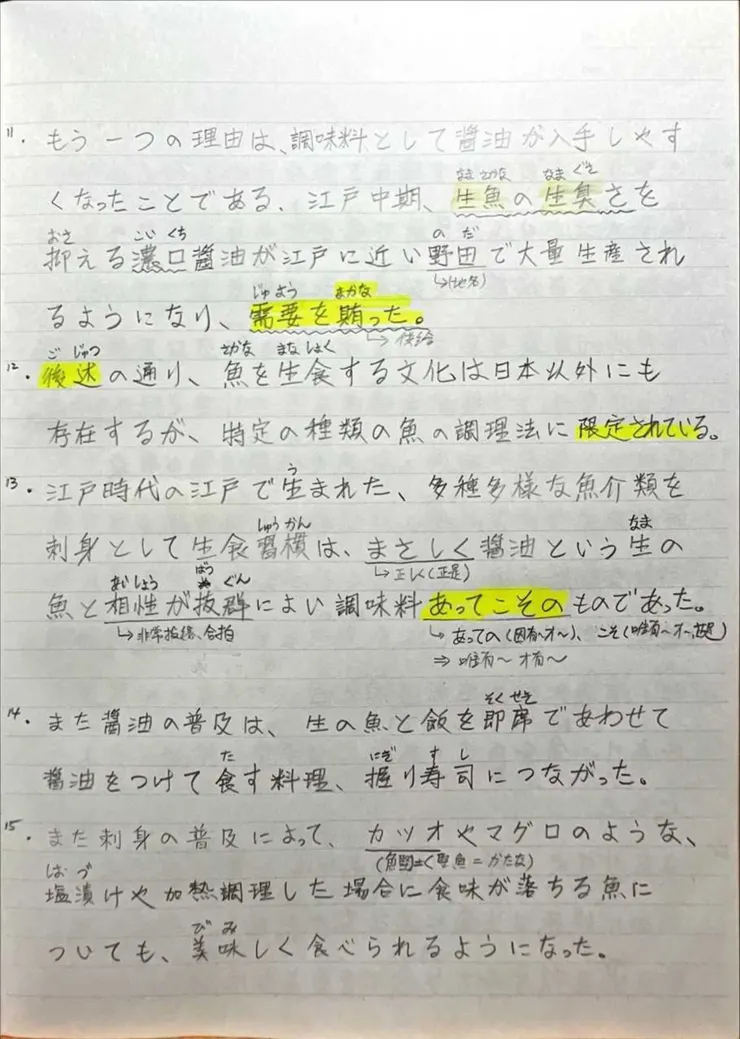 11. もう一つの理由は、調味料として醤油が入手しやす
なまさかな なまぐさ
くなったことである。江戸中期、生魚の生臭さを
おさ こいくち のだ
抑える濃口醤油が江戸に近い野田で大量生産され
↳(地名)
じゅよう まかな
るようになり、需要を賄った。
↳供給
ごじゅつ さかな なましょく
12. 後述の通り、魚を生食する文化は日本以外にも
存在するが、特定の種類の魚の調理法に限定されている。
う
13. 江戸時代の江戸で生まれた、多種多様な魚介類を
しゅうかん なま
刺身として生食習慣は、まさしく醤油という生の
↳正しく(正是)
あいしょう ばつぐん
魚と相性が抜群によい調味料あってこそのものであった。
↳非常 合拍 ↳あっての(因有~才~)、こそ(唯有~才~)
⇒唯有~才有~
そくせき
14. また醤油の普及は、生の魚と飯を即席であわせて
た にぎ すし
醤油をつけて食す料理、握り寿司につながった。
15. また刺身の普及によって、カツオやマグロのような、
はづ
塩漬けや加熱調理した場合に食味が落ちる魚に
びみ
ついても、美味しく食べられるようになった。